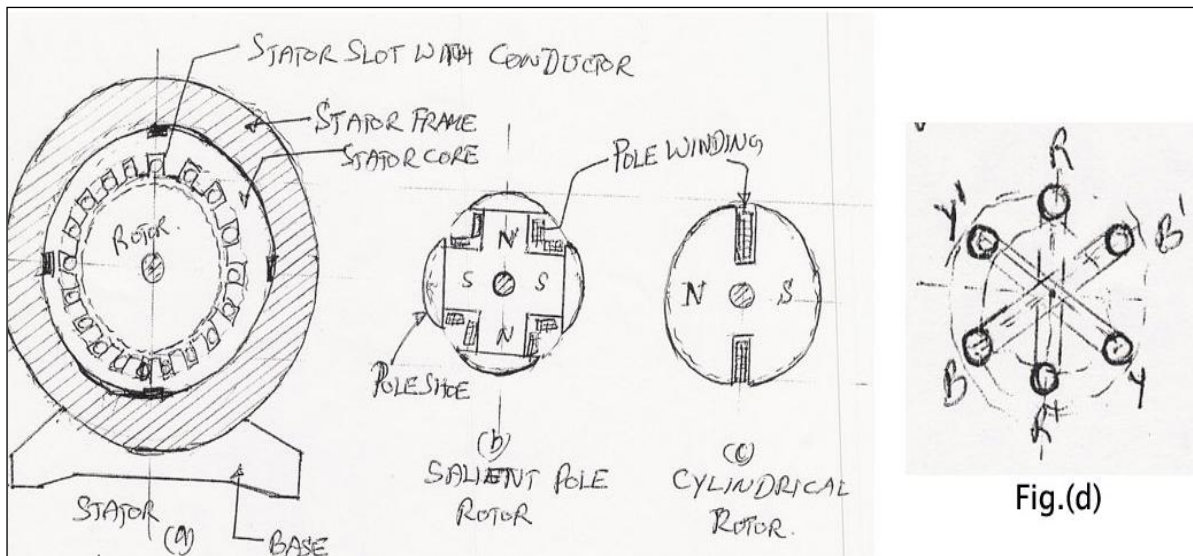 STATOR SLOT WITH CONDUCTOR
STATOR FRAME
STATOR CORE
ROTOR.
STATOR
(a)
BASE
POLE WINDING
N
S S
N
POLE SHOE
(b)
SALIENT POLE
ROTOR
N S
(c)
CYLINDRICAL
ROTOR.
R
Y' B'
B Y
R'
Fig.(d)